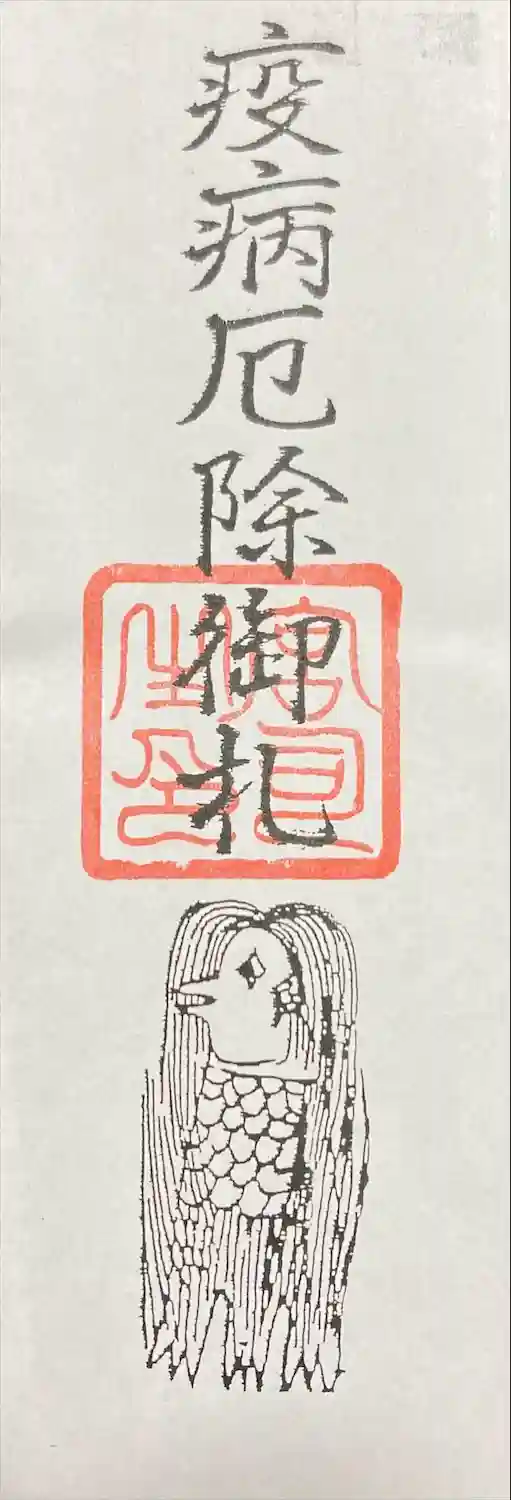 疫病厄除御札